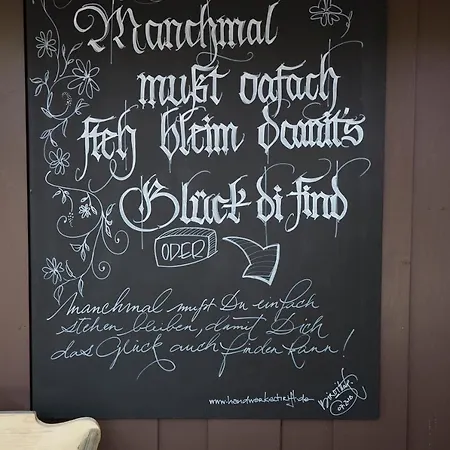 Manchmal
mußt oafach
steh bleim damit's
Glück di find
ODER
Manchmal mußt Du einfach
stehen bleiben, damit Dich
das Glück auch finden kann!